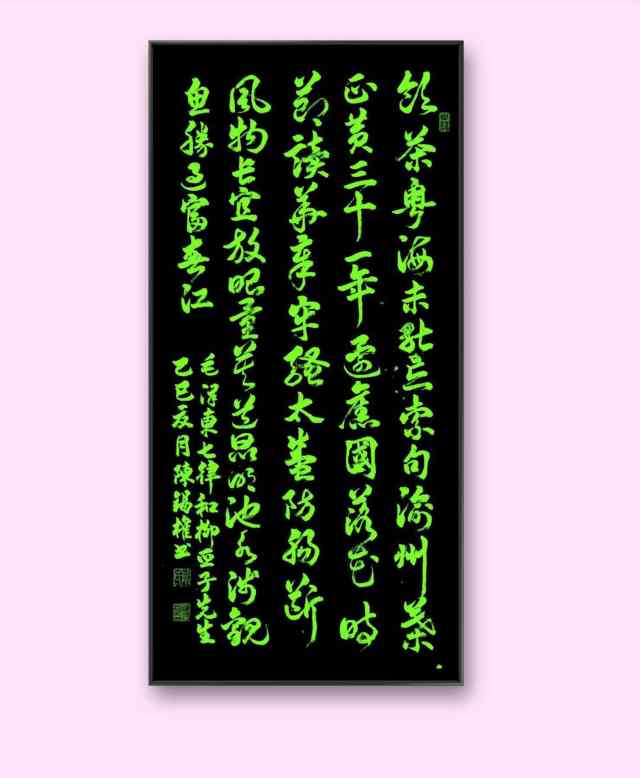 飲茶粵海未能忘索句渝州葉
正黃三十一年還舊國落花時
節讀華章牢騷太盛防腸斷
風物長宜放眼量莫道昆明池水淺觀
魚勝過富春江
毛澤東七律和柳亞子先生
乙巳夏月陳錫權書